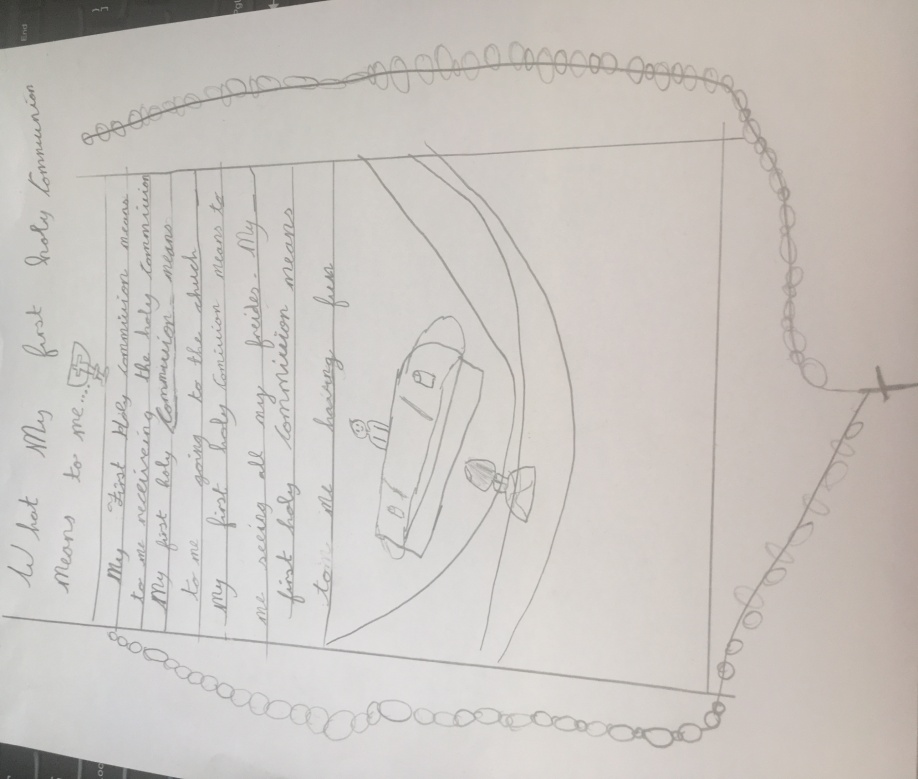 What My first holy Communion
means to me...
My First Holy commission means
to me receiving the holy Commission
My first holy Commission means
to me going to the chuch
My first holy Comission means to
me seeing all my freides. My
first holy Commission means
to me haiving fun